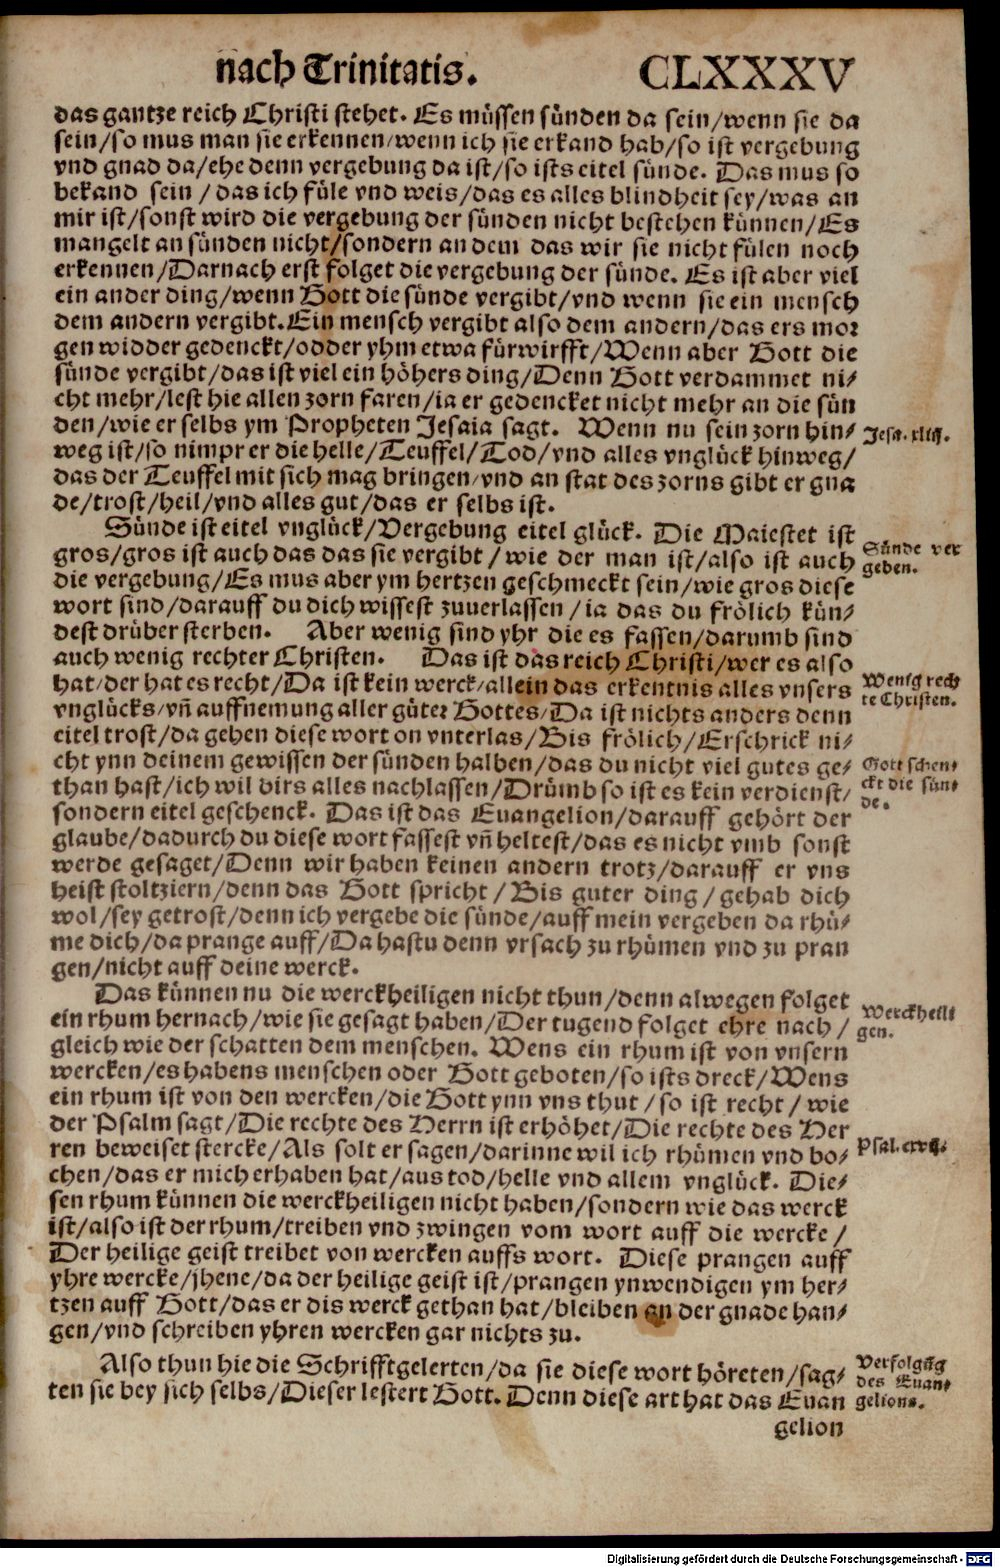 nach Trinitatis. CLXXXV
das gantze reich Christi stehet. Es müssen sünden da sein/wenn sie da
sein/so mus man sie erkennen/wenn ich sie erkand hab/so ist vergebung
vnd gnad da/ehe denn vergebung da ist/so ists eitel sünde. Das mus so
bekand sein/das ich füle vnd weis/das es alles blindheit sey/was an
mir ist/sonst wird die vergebung der sünden nicht bestehen künnen/Es
mangelt an sünden nicht/sondern an dem das wir sie nicht fülen noch
erkennen/Darnach erst folget die vergebung der sünde. Es ist aber viel
ein ander ding/wenn Gott die sünde vergibt/vnd wenn sie ein mensch
dem andern vergibt. Ein mensch vergibt also dem andern/das ers mor
gen widder gedenckt/odder yhm etwa fürwirfft/Wenn aber Gott die
sünde vergibt/das ist viel ein höhers ding/Denn Gott verdammet ni-
cht mehr/lest hie allen zorn faren/ia er gedencket nicht mehr an die sün
den/wie er selbs ym Propheten Jesaia sagt. Wenn nu sein zorn hin-
Jesa. xliij.
weg ist/so nimpt er die helle/Teuffel/Tod/vnd alles vnglück hinweg/
das der Teuffel mit sich mag bringen/vnd an stat des zorns gibt er gna
de/trost/heil/vnd alles gut/das er selbs ist.
Sünde ist eitel vnglück/Vergebung eitel glück. Die Maiestet ist
Sünde ver
geben.
gros/gros ist auch das das sie vergibt/wie der man ist/also ist auch
die vergebung/Es mus aber ym hertzen geschmeckt sein/wie gros diese
wort sind/darauff du dich wissest zuuerlassen/ia das du frölich kün-
dest drüber sterben. Aber wenig sind yhr die es fassen/darumb sind
auch wenig rechter Christen. Das ist das reich Christi/wer es also
Wenig rech
te Christen.
hat/der hat es recht/Da ist kein werck/allein das erkentnis alles vnsers
vnglücks/vñ auffnemung aller güter Gottes/Da ist nichts anders denn
eitel trost/da gehen diese wort on vnterlas/Bis frölich/Erschrick ni-
cht ynn deinem gewissen der sünden halben/das du nicht viel gutes ge-
Gott schen-
ckt die sün-
de.
than hast/ich wil dirs alles nachlassen/Drümb so ist es kein verdienst/
sondern eitel geschenck. Das ist das Euangelion/darauff gehört der
glaube/dadurch du diese wort fassest vñ heltest/das es nicht vmb sonst
werde gesaget/Denn wir haben keinen andern trotz/darauff er vns
heist stoltziern/denn das Gott spricht/Bis guter ding/gehab dich
wol/sey getrost/denn ich vergebe die sünde/auff mein vergeben da rhü-
me dich/da prange auff/Da hastu denn vrsach zu rhümen vnd zu pran
gen/nicht auff deine werck.
Das künnen nu die werckheiligen nicht thun/denn alwegen folget
Werckheili
gen.
ein rhum hernach/wie sie gesagt haben/Der tugend folget ehre nach/
gleich wie der schatten dem menschen. Wens ein rhum ist von vnsern
wercken/es habens menschen oder Gott geboten/so ists dreck/Wens
ein rhum ist von den wercken/die Gott ynn vns thut/so ist recht/wie
der Psalm sagt/Die rechte des Herrn ist erhöhet/Die rechte des Her
ren beweiset stercke/Als solt er sagen/darinne wil ich rhümen vnd bo-
chen/das er mich erhaben hat/aus tod/helle vnd allem vnglück. Die-
sen rhum künnen die werckheiligen nicht haben/sondern wie das werck
ist/also ist der rhum/treiben vnd zwingen vom wort auff die wercke/
Der heilige geist treibet von wercken auffs wort. Diese prangen auff
yhre wercke/jhene/da der heilige geist ist/prangen ynwendigen ym her-
tzen auff Gott/das er dis werck gethan hat/bleiben an der gnade han-
gen/vnd schreiben yhren wercken gar nichts zu.
Also thun hie die Schrifftgelerten/da sie diese wort höreten/sag-
Verfolgũg
des Euan-
gelions.
ten sie bey sich selbs/Dieser lestert Gott. Denn diese art hat das Euan
gelion
Digitalisierung gefördert durch die Deutsche Forschungsgemeinschaft - DFG